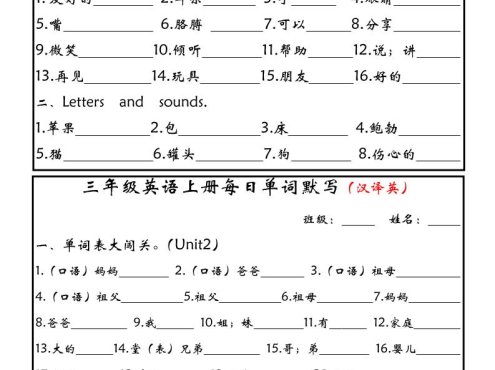 5.嘴________ 6.胳膊________ 7.可以________ 8.分享________
9.微笑________ 10.倾听________ 11.帮助________ 12.说；讲________
13.再见________ 14.玩具________ 15.朋友________ 16.好的________
二、Letters and sounds.
1.苹果________ 2.包________ 3.床________ 4.鲍勃________
5.猫________ 6.罐头________ 7.狗________ 8.伤心的________
三年级英语上册每日单词默写（汉译英）
班级：____ 姓名：____
一、单词表大闯关。（Unit2）
1.（口语）妈妈________ 2.（口语）爸爸________ 3.（口语）祖母________
4.（口语）祖父________ 5.祖父________ 6.祖母________ 7.妈妈________
8.爸爸________ 9.我________ 10.姐；妹________ 11.有________ 12.家庭________
13.大的________ 14.堂（表）兄弟________ 15.哥；弟________ 16.婴儿________